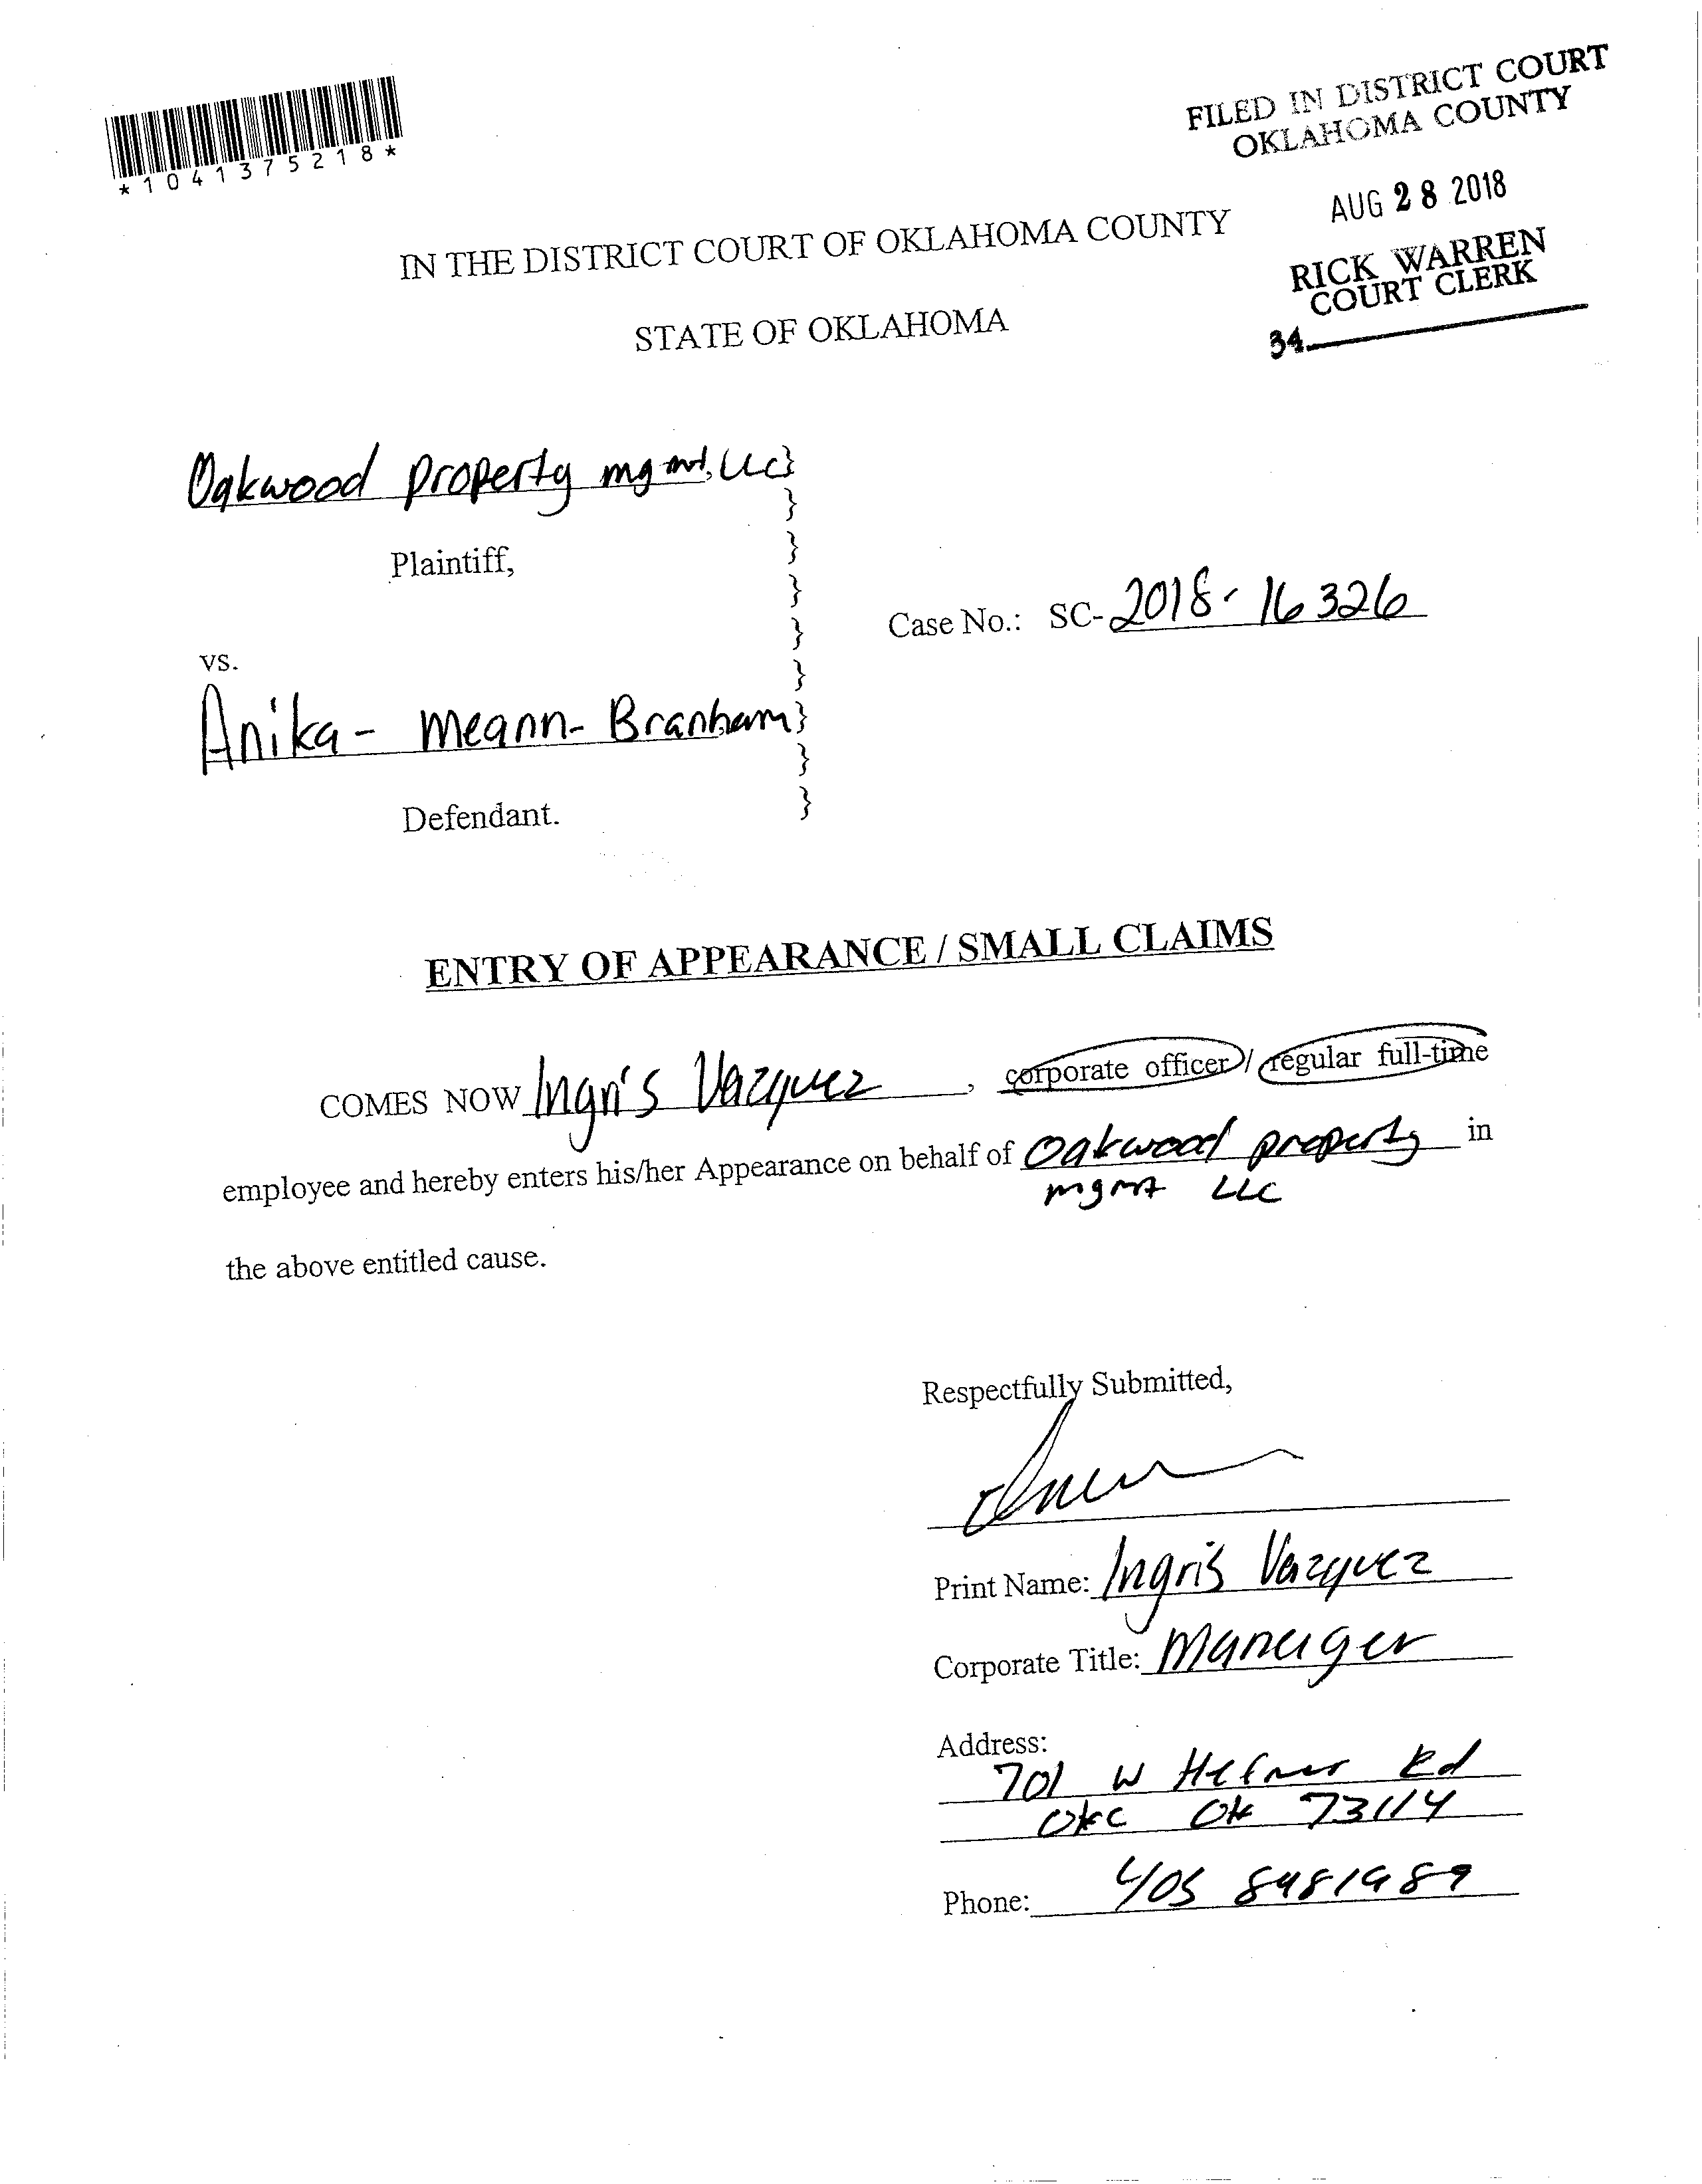 FILED IN DISTRICT COURT
OKLAHOMA COUNTY
*1041375218*
AUG 28 2018
IN THE DISTRICT COURT OF OKLAHOMA COUNTY
RICK WARREN
COURT CLERK
STATE OF OKLAHOMA
34
Oakwood property mgmt, LLC}
}
Plaintiff, }
}
Case No.: SC-2018-16326
}
vs. }
Anika- meann- Branham}
}
Defendant. }
ENTRY OF APPEARANCE / SMALL CLAIMS
COMES NOW Ingris Vazquez, corporate officer / regular full-time
employee and hereby enters his/her Appearance on behalf of Oakwood property in
mgmt LLC
the above entitled cause.
Respectfully Submitted,
Print Name: Ingris Vazquez
Corporate Title: Manager
Address:
701 W Hefner Rd
OKC OK 73114
Phone: 405 8481989